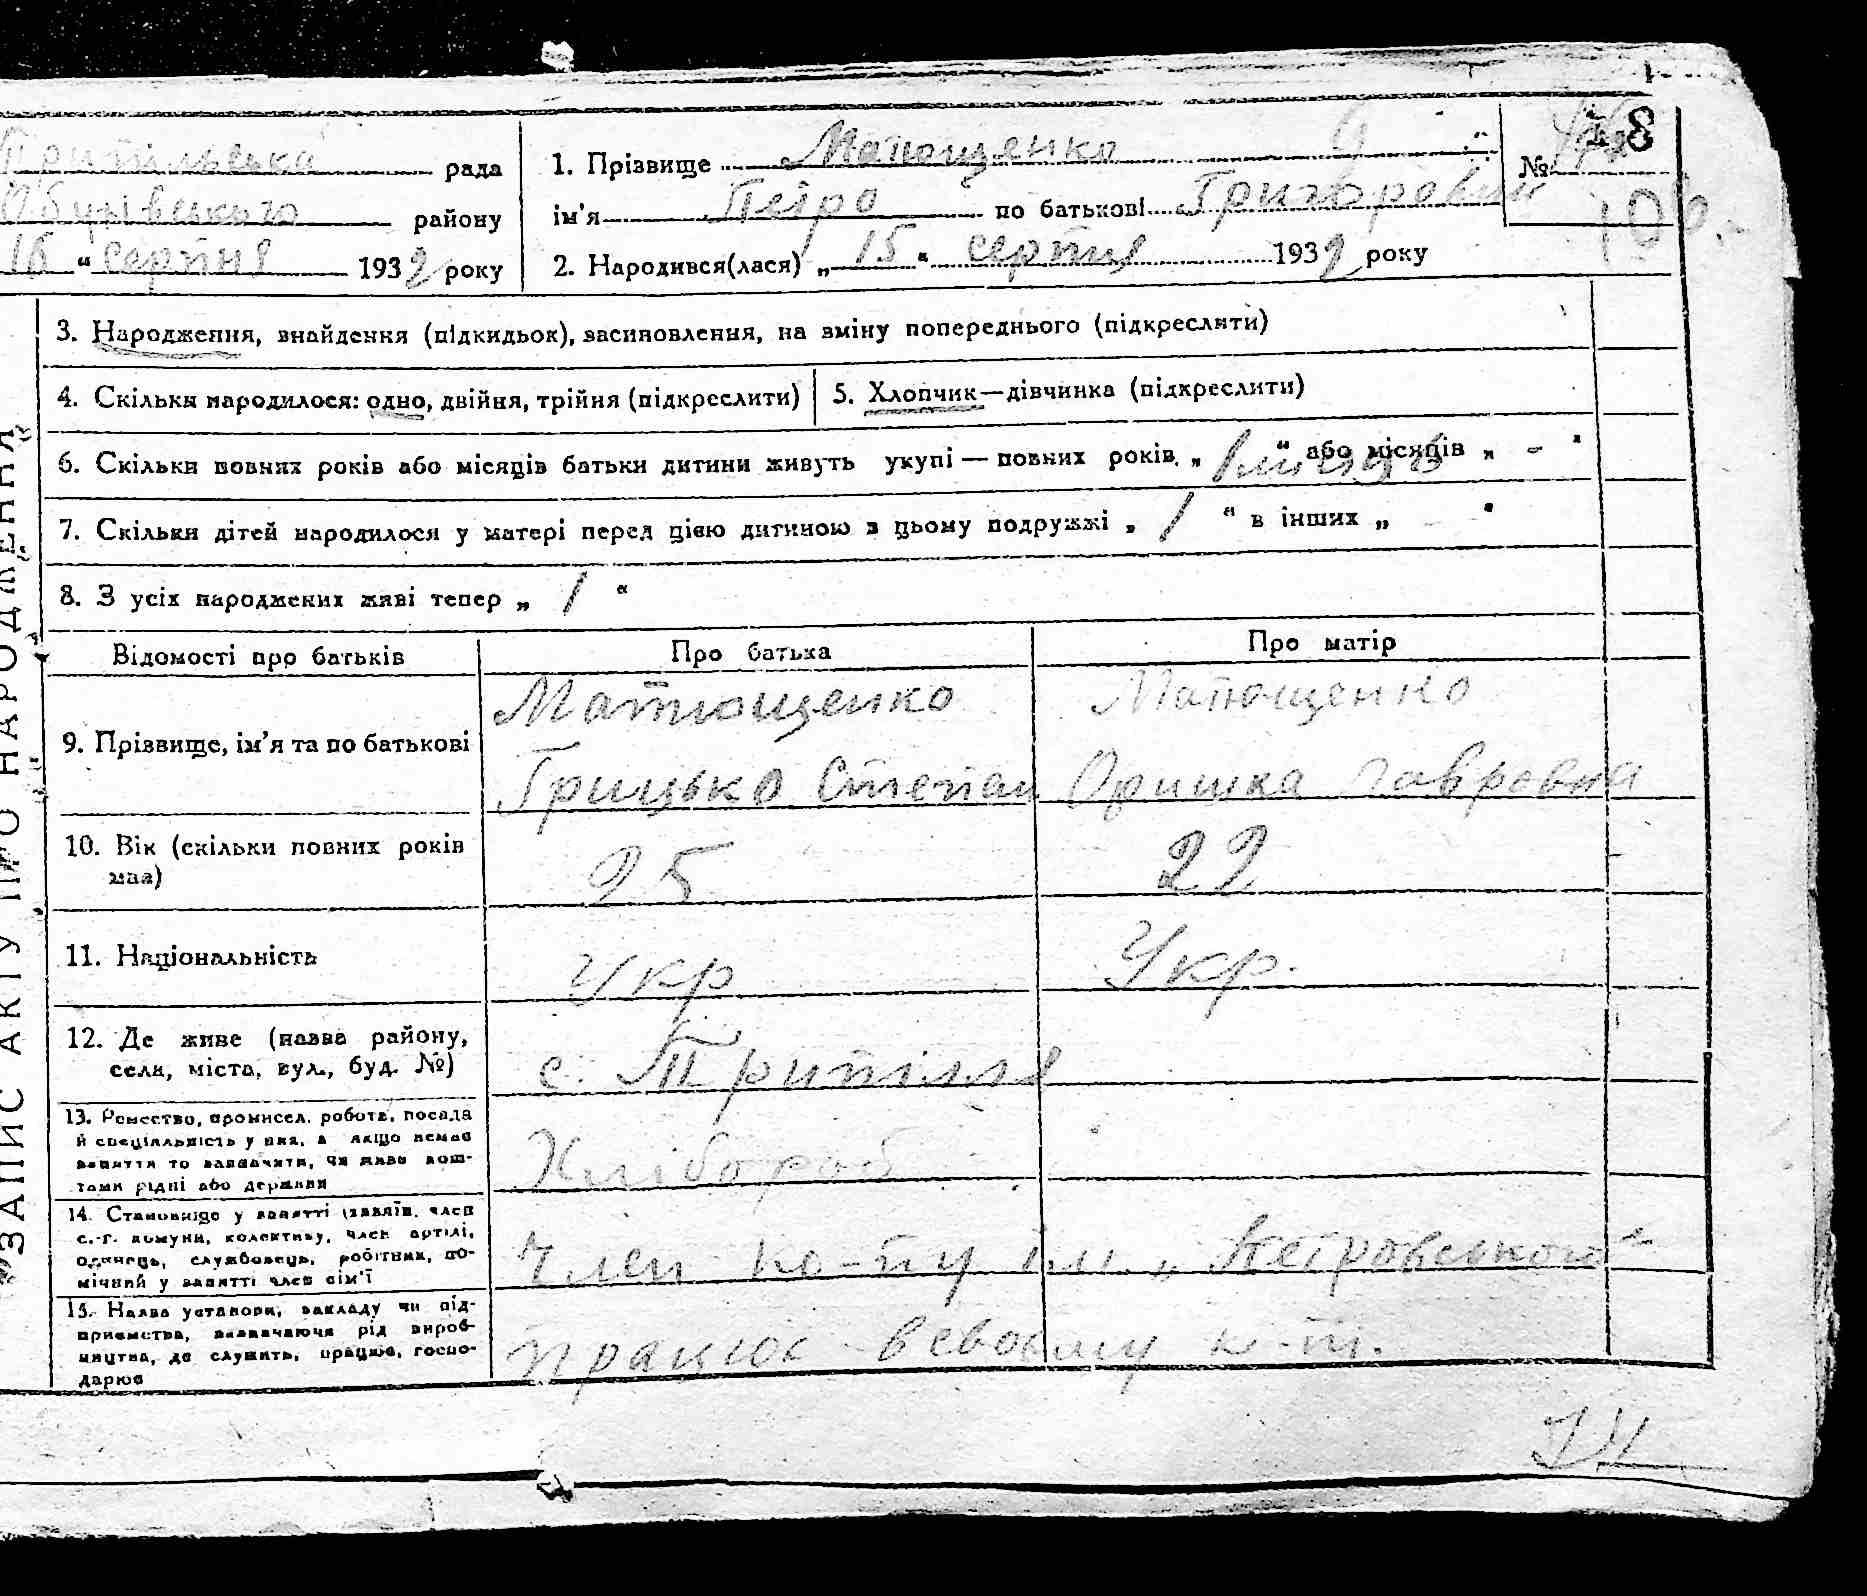 Трипільська рада
Обухівського району
16 “ серпня 1932 року
1. Прізвище Матющенко
ім’я Петро по батькові Григорович
2. Народився(лася) „ 15 “ серпня 1932 року
№ 8
100
ЗАПИС АКТУ ПРО НАРОДЖЕННЯ
3. Народження, знайдення (підкидьок), засиновлення, на зміну попереднього (підкреслити)
4. Скільки народилося: одно, двійня, трійня (підкреслити)
5. Хлопчик—дівчинка (підкреслити)
6. Скільки повних років або місяців батьки дитини живуть укупі — повних років „ 1 “ або місяців „ - “
7. Скільки дітей народилося у матері перед цією дитиною в цьому подружжі „ 1 “ в інших „ “
8. З усіх народжених живі тепер „ 1 “
Відомості про батьків
Про батька
Про матір
9. Прізвище, ім’я та по батькові
Матющенко
Грицько Степан
Матющенко
Оришка Лавровна
10. Вік (скільки повних років
має)
25
22
11. Національність
Укр
Укр.
12. Де живе (назва району,
села, міста, вул., буд. №)
с. Трипілля
13. Ремество, промисел, робота, посада
й спеціяльність у них, а якщо немає
заняття то зазначити, чи живе кош-
тами рідні або держави
Хлібороб
14. Становище у занятті (хазяїн, член
с.-г. комуни, колективу, член артілі,
одинець, службовець, робітник, по-
мічний у занятті член сім’ї
Член ко-пу ім. „Петровського“
15. Назва установи, закладу чи під-
приємства, зазначаючи рід вироб-
ництва, де служить, працює, госпо-
дарює
працює всвоєму к-т.